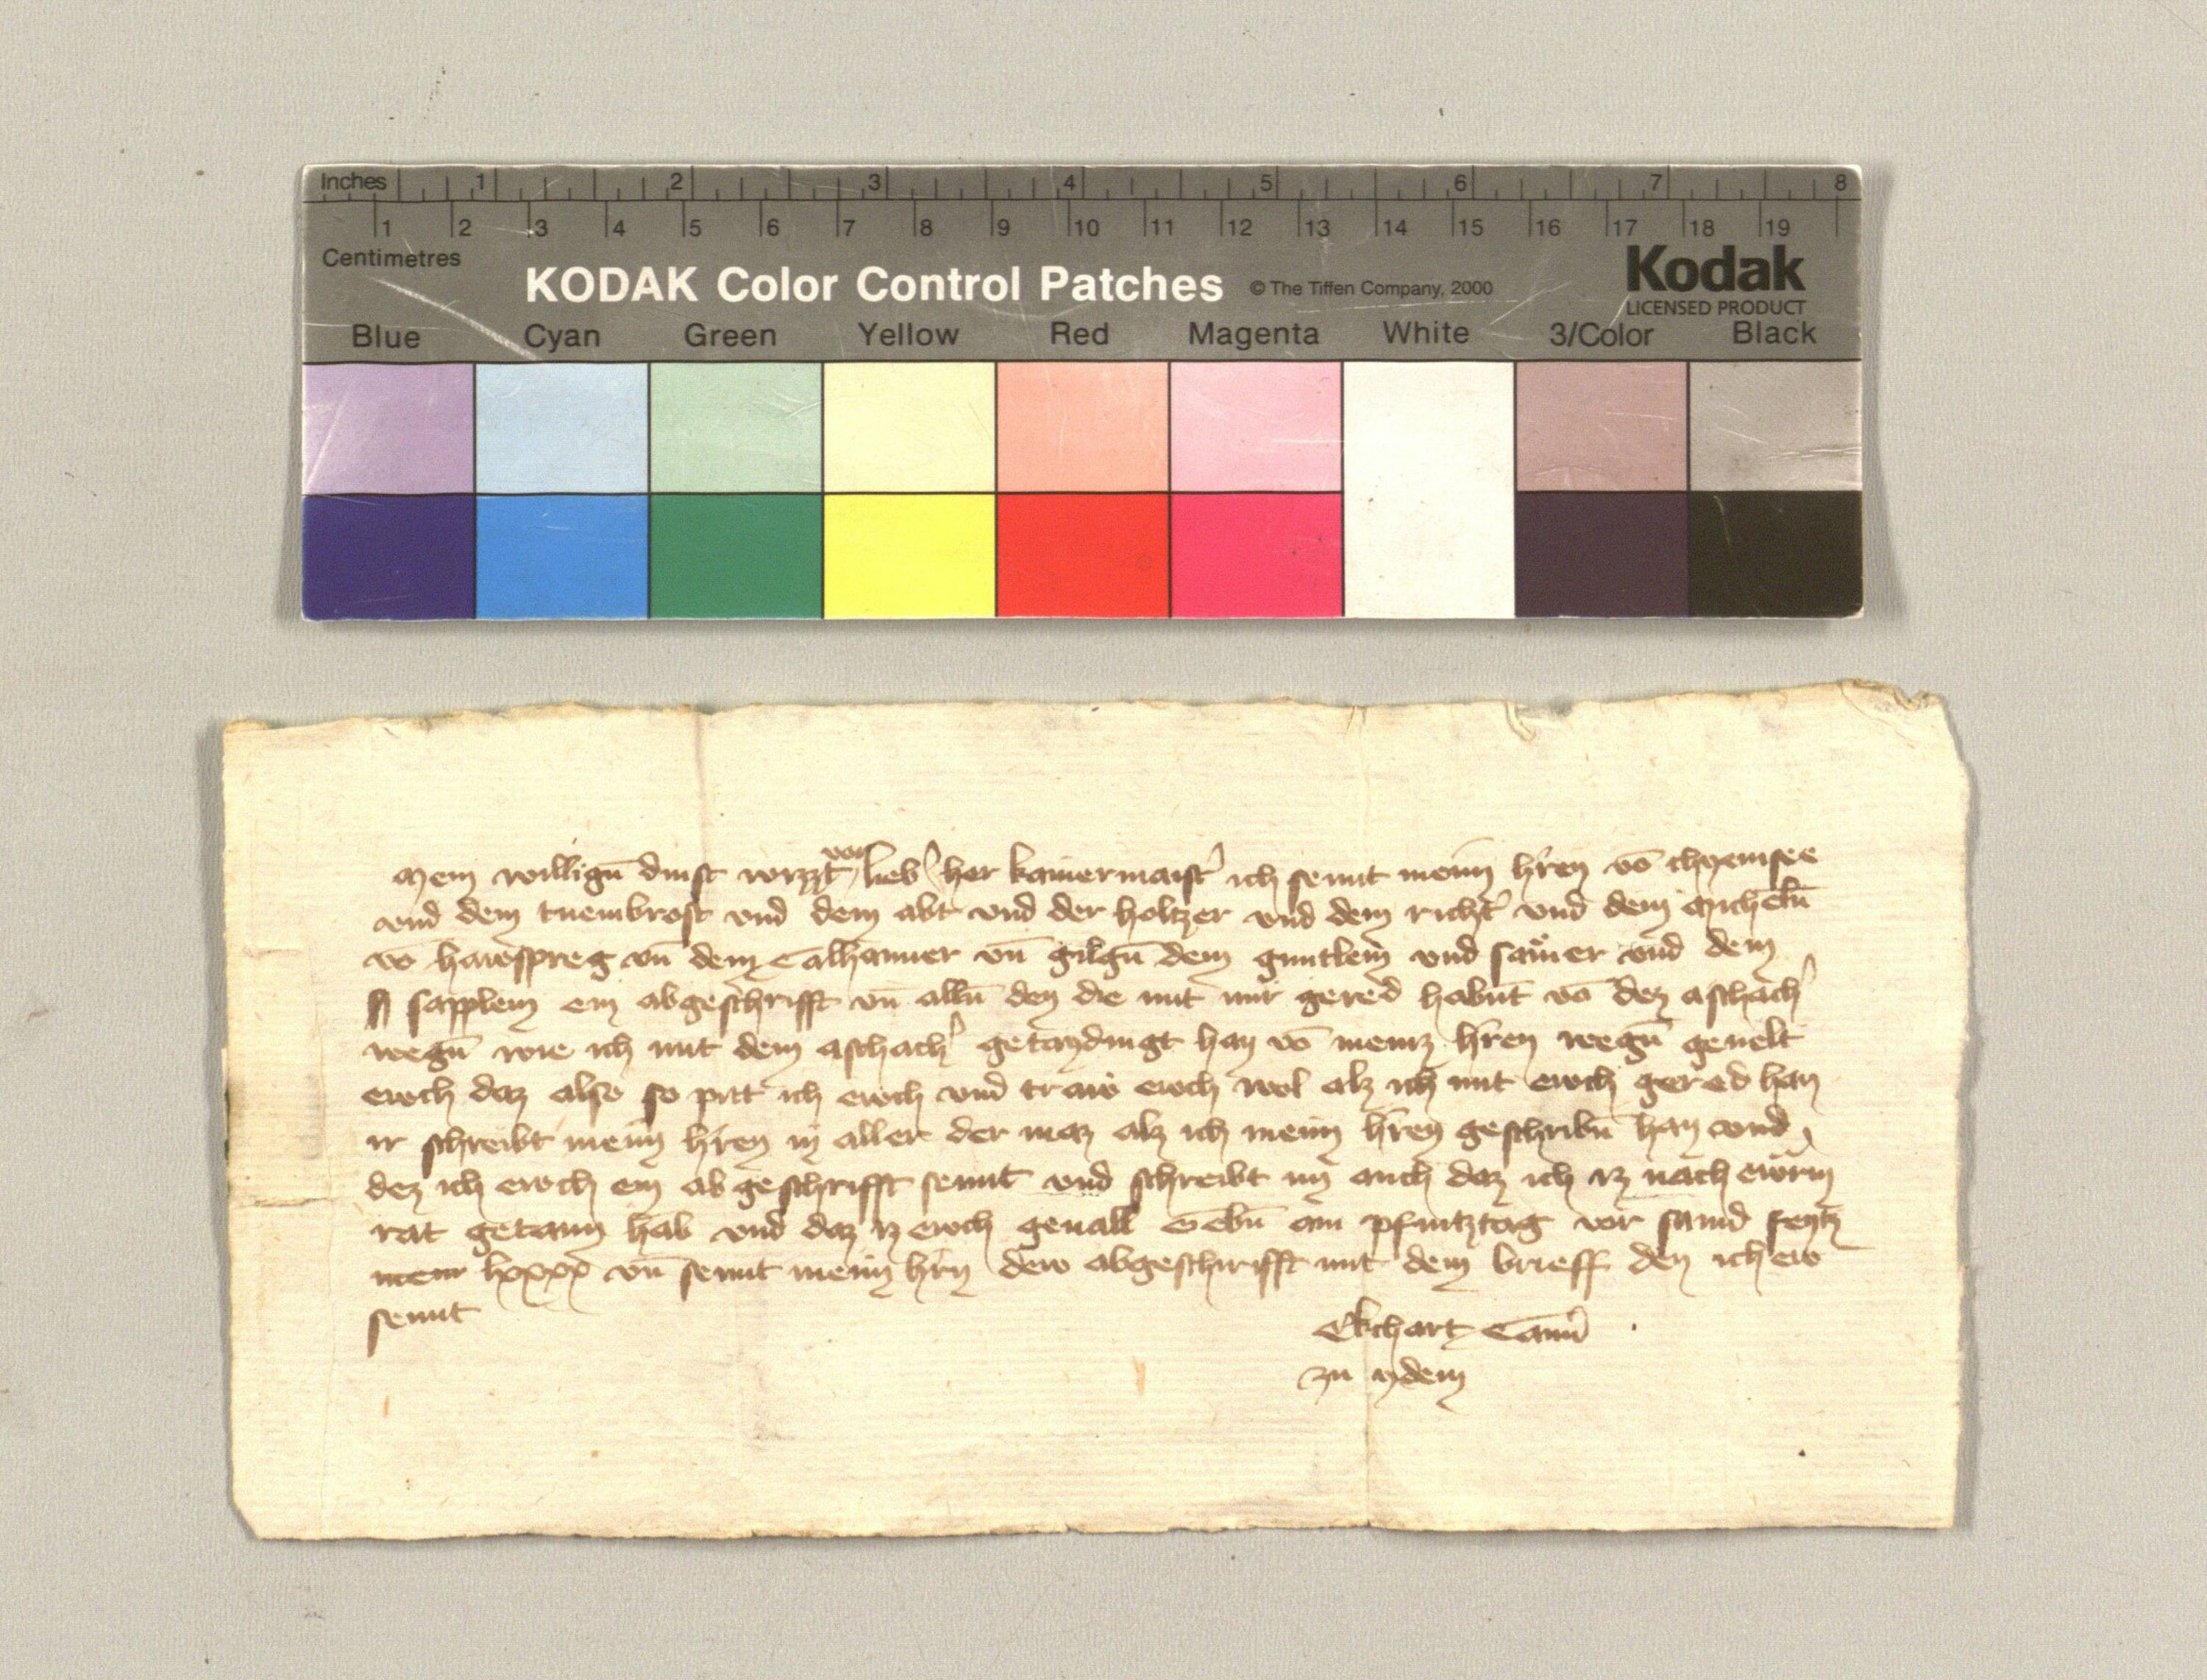 Inches 1 2 3 4 5 6 7 8
1 2 3 4 5 6 7 8 9 10 11 12 13 14 15 16 17 18 19
Centimetres
KODAK Color Control Patches © The Tiffen Company, 2000
Kodak
LICENSED PRODUCT
Blue Cyan Green Yellow Red Magenta White 3/Color Black
Mein willigñ dinst vor lieb' her kam̄ermaist' ich sennt meinē h'ren vō chyemsee
vnd dem tuembrost vnd dem abt vnd der holtzer vnd dem richt' vnd dem
vō hawspreg vn̄ dem Talhaimer vn̄ gilgn̄ dem vnd vnd dem
ein abgeschrifft vn̄ alln̄ den die mit mir gered habn̄t vō dez aschach'
wegn̄ wie ich mit dem aschach' getaydingt han vō meinz h'ren wegn̄ geuelt
ewch daz also so pitt ich ewch vnd traw ewch wol alz ich mit ewch gered han
ir schreibt meinē h'ren in aller der maz alz ich meinē h'ren geschribn̄ han vnd
dez ich ewch ein abgeschrifft sennt vnd schreibt im auch daz ich iz nach ewrm
rat getann hab vnd daz iz ewch geuall Gebn̄ am pfintztag vor sannd
lxxxx vn̄ sennt meinē h'rn dew abgeschrifft mit dem brieff den ich ew
sennt
Ekchart Tann'
zu